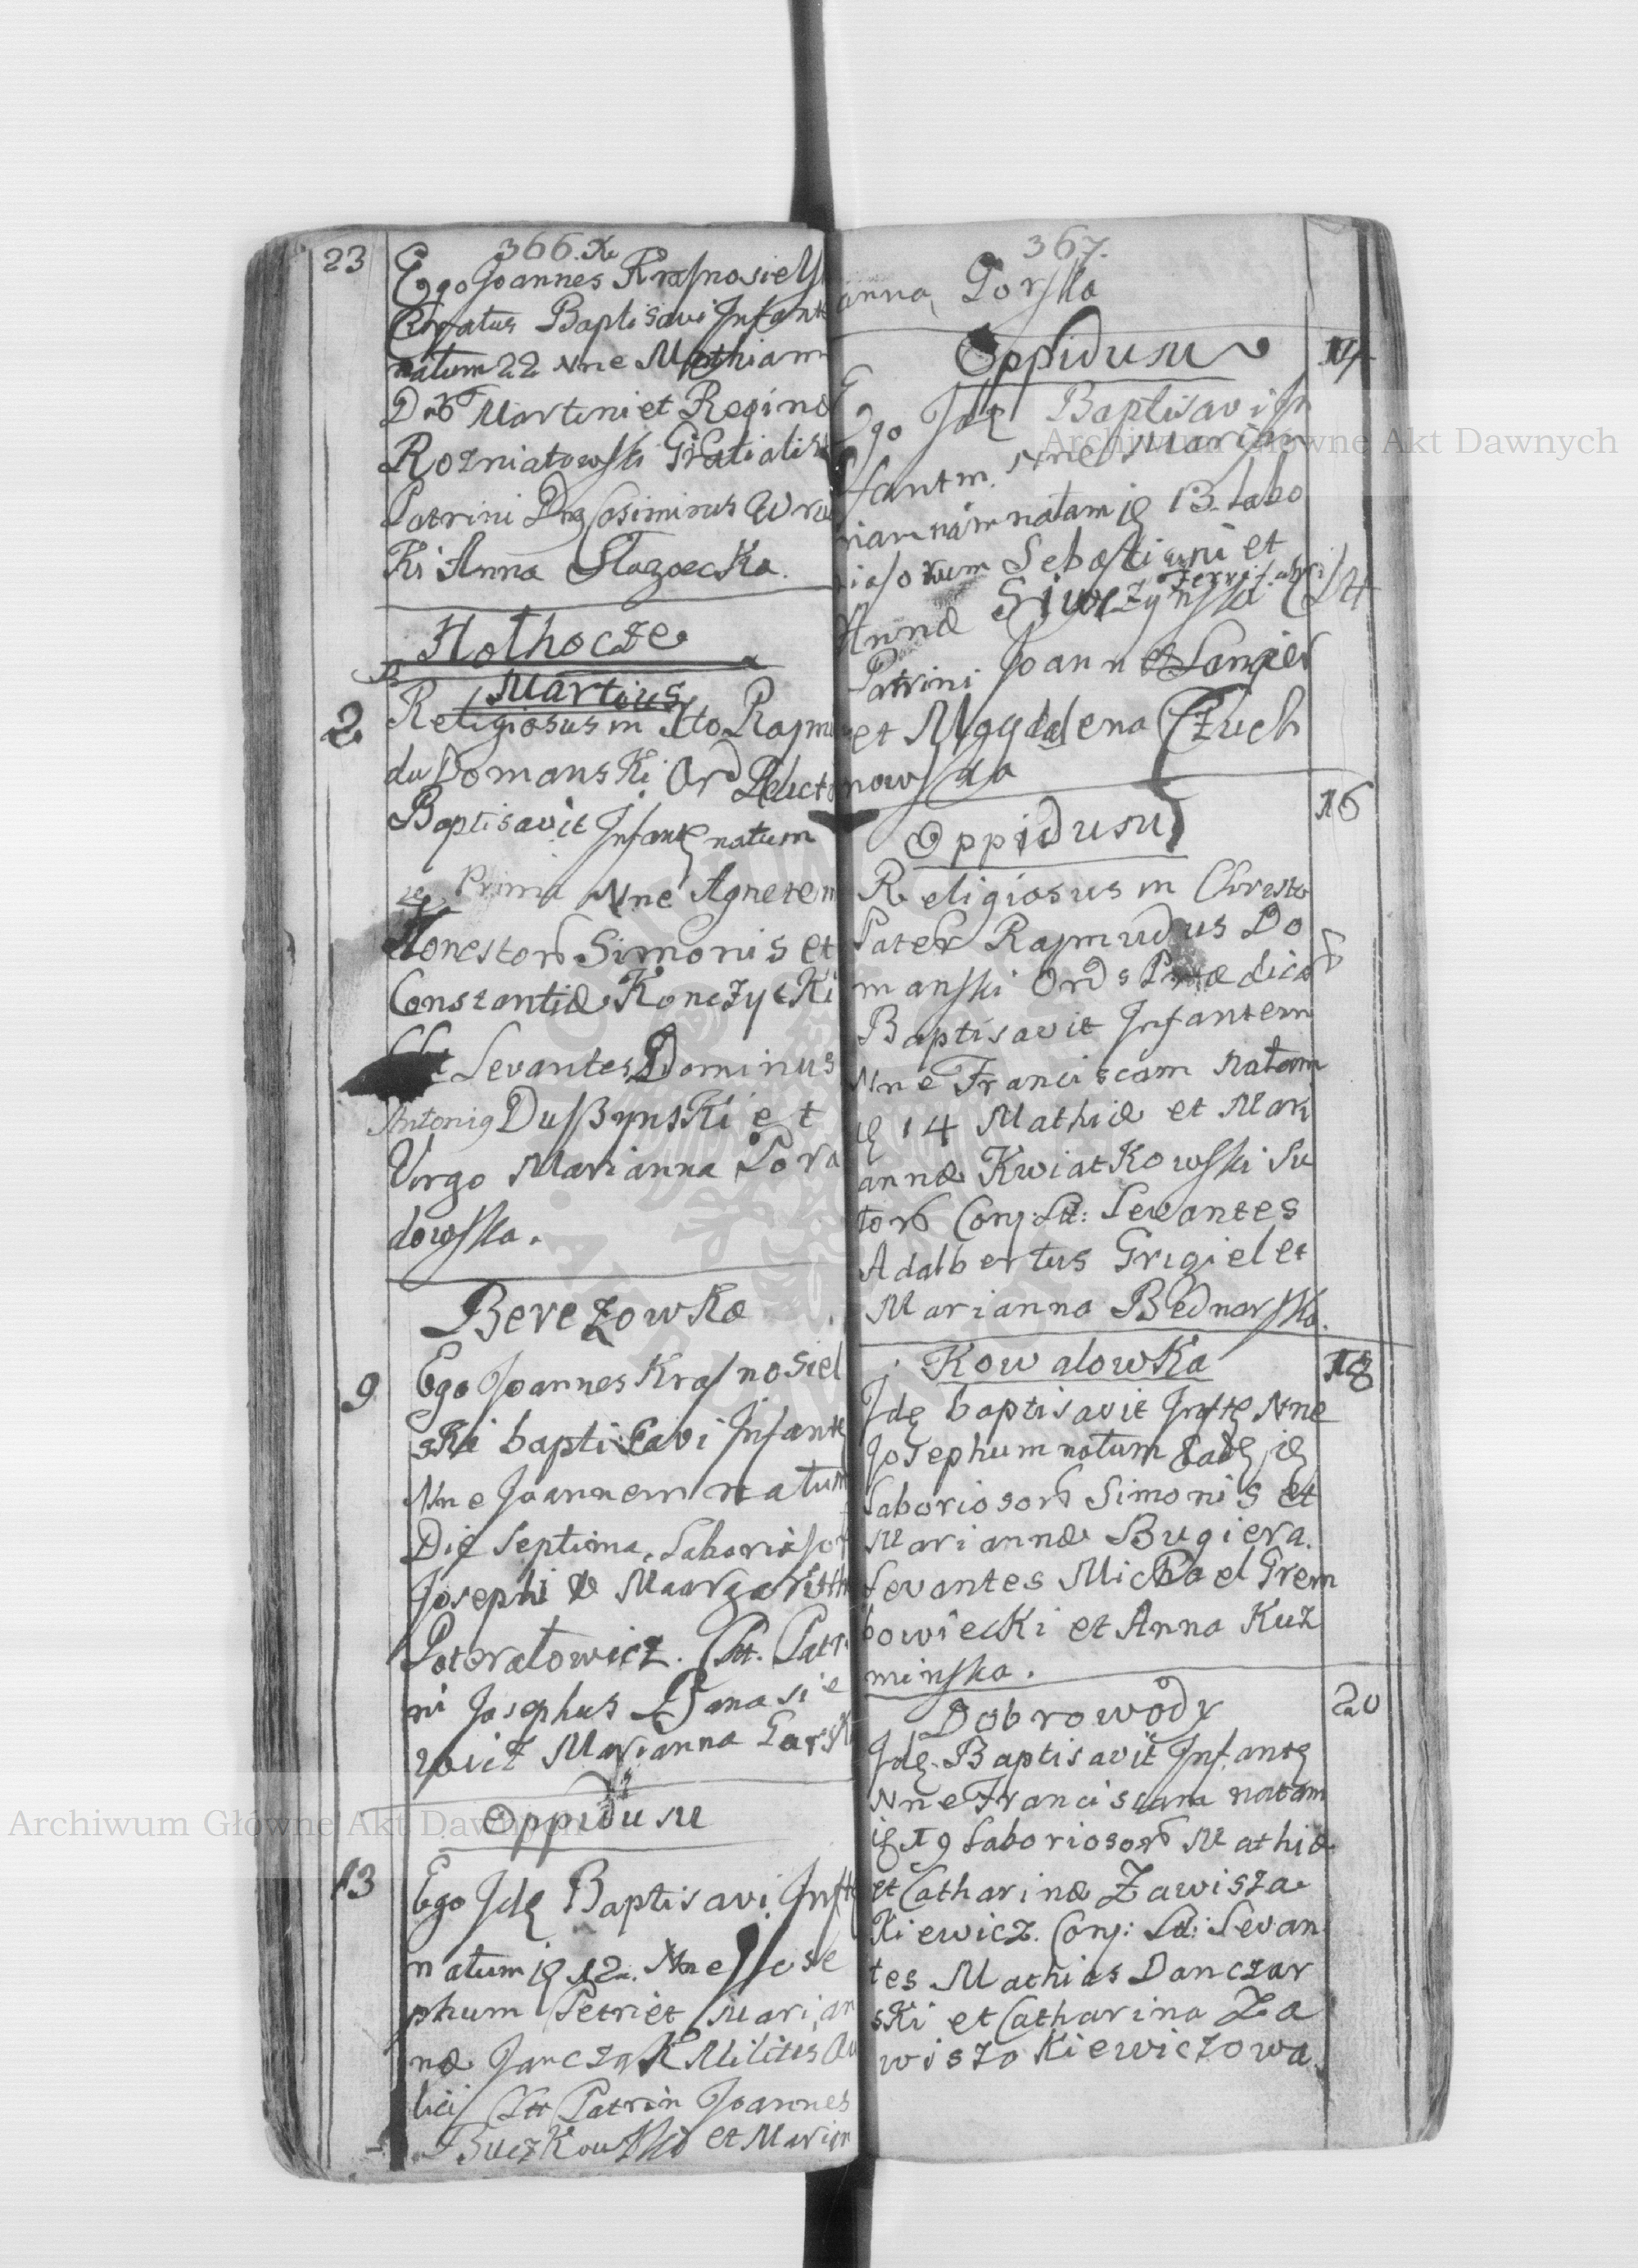 366.
23
Ego Joannes Krasnosiels
Curatus Baptisavi Infant
natum 22 Nne Mathiam
Martini et Regina
Rozniatowski
Patrini Casimirus
Ki Anna
Hothocze
Martius
2
Religiosus in Xto Rajmu
du Domanski Ord
Baptisavit Infantę natum
Prima Nne Agnetem
Honestor Simonis et
Constantiæ KonczycKi
Levantes Dominus
Antonig DuszynsKi et
Virgo Marianna Pora
dowska.
BerezowKa
9
Ego Joannes Krasnosiel
sKi baptisavi Infantę
Nne Joannem natum
Die Septima. Laborisor
Josephi &
Poteratowicz. Ctt. Patri
ni Josephus Banasie
wicz Marianna Gorsk
Oppidum
13
Ego Idę Baptisavi Inftę
natum ię 12. Nne Jose
phum Petri et Marian
næ Janczak Militis Au
lici Ctt Patrin Joannes
BuczKowski et Marian
367.
anna Gorska
Oppidum
14
Ego Idę Baptisavi In
fantm. Nne Marian
nam natam ię 13 Labo
riosorum Sebastiani et
Annæ
Patrini Joannes
et Magdalena Czuch
nowska
Oppidum
16
Religiosus in Christo
Pater Rajmudus Do
manski Ords Prædicat
Baptisavit Infantem
Nne Franciscam Natam
ię 14 Mathiæ et Mari
annæ KwiatKowski Su
tor Conj: Ltt: Levantes
Adalbertus Grigiel et
Marianna Bednarska.
KowalowKa
18
Idę baptisavit Inftę Nne
Josephum natum Eadę ię
Laboriosor Simonis et
Mariannæ Bugiera.
Levantes Michael Grem
bowiecKi et Anna Kuz
minska.
Dobrowody
20
Idę Baptisavit Infantę
Nne Franciscam natam
ię 19 Laboriosor Mathiæ
et Catharinæ Zawisza
Kiewicz. Conj: Ltt: Levan
tes Mathias Danczar
sKi et Catharina Za
wiszaKiewiczowa.
Archiwum Główne Akt Dawnych
Archiwum Główne Akt Dawnych